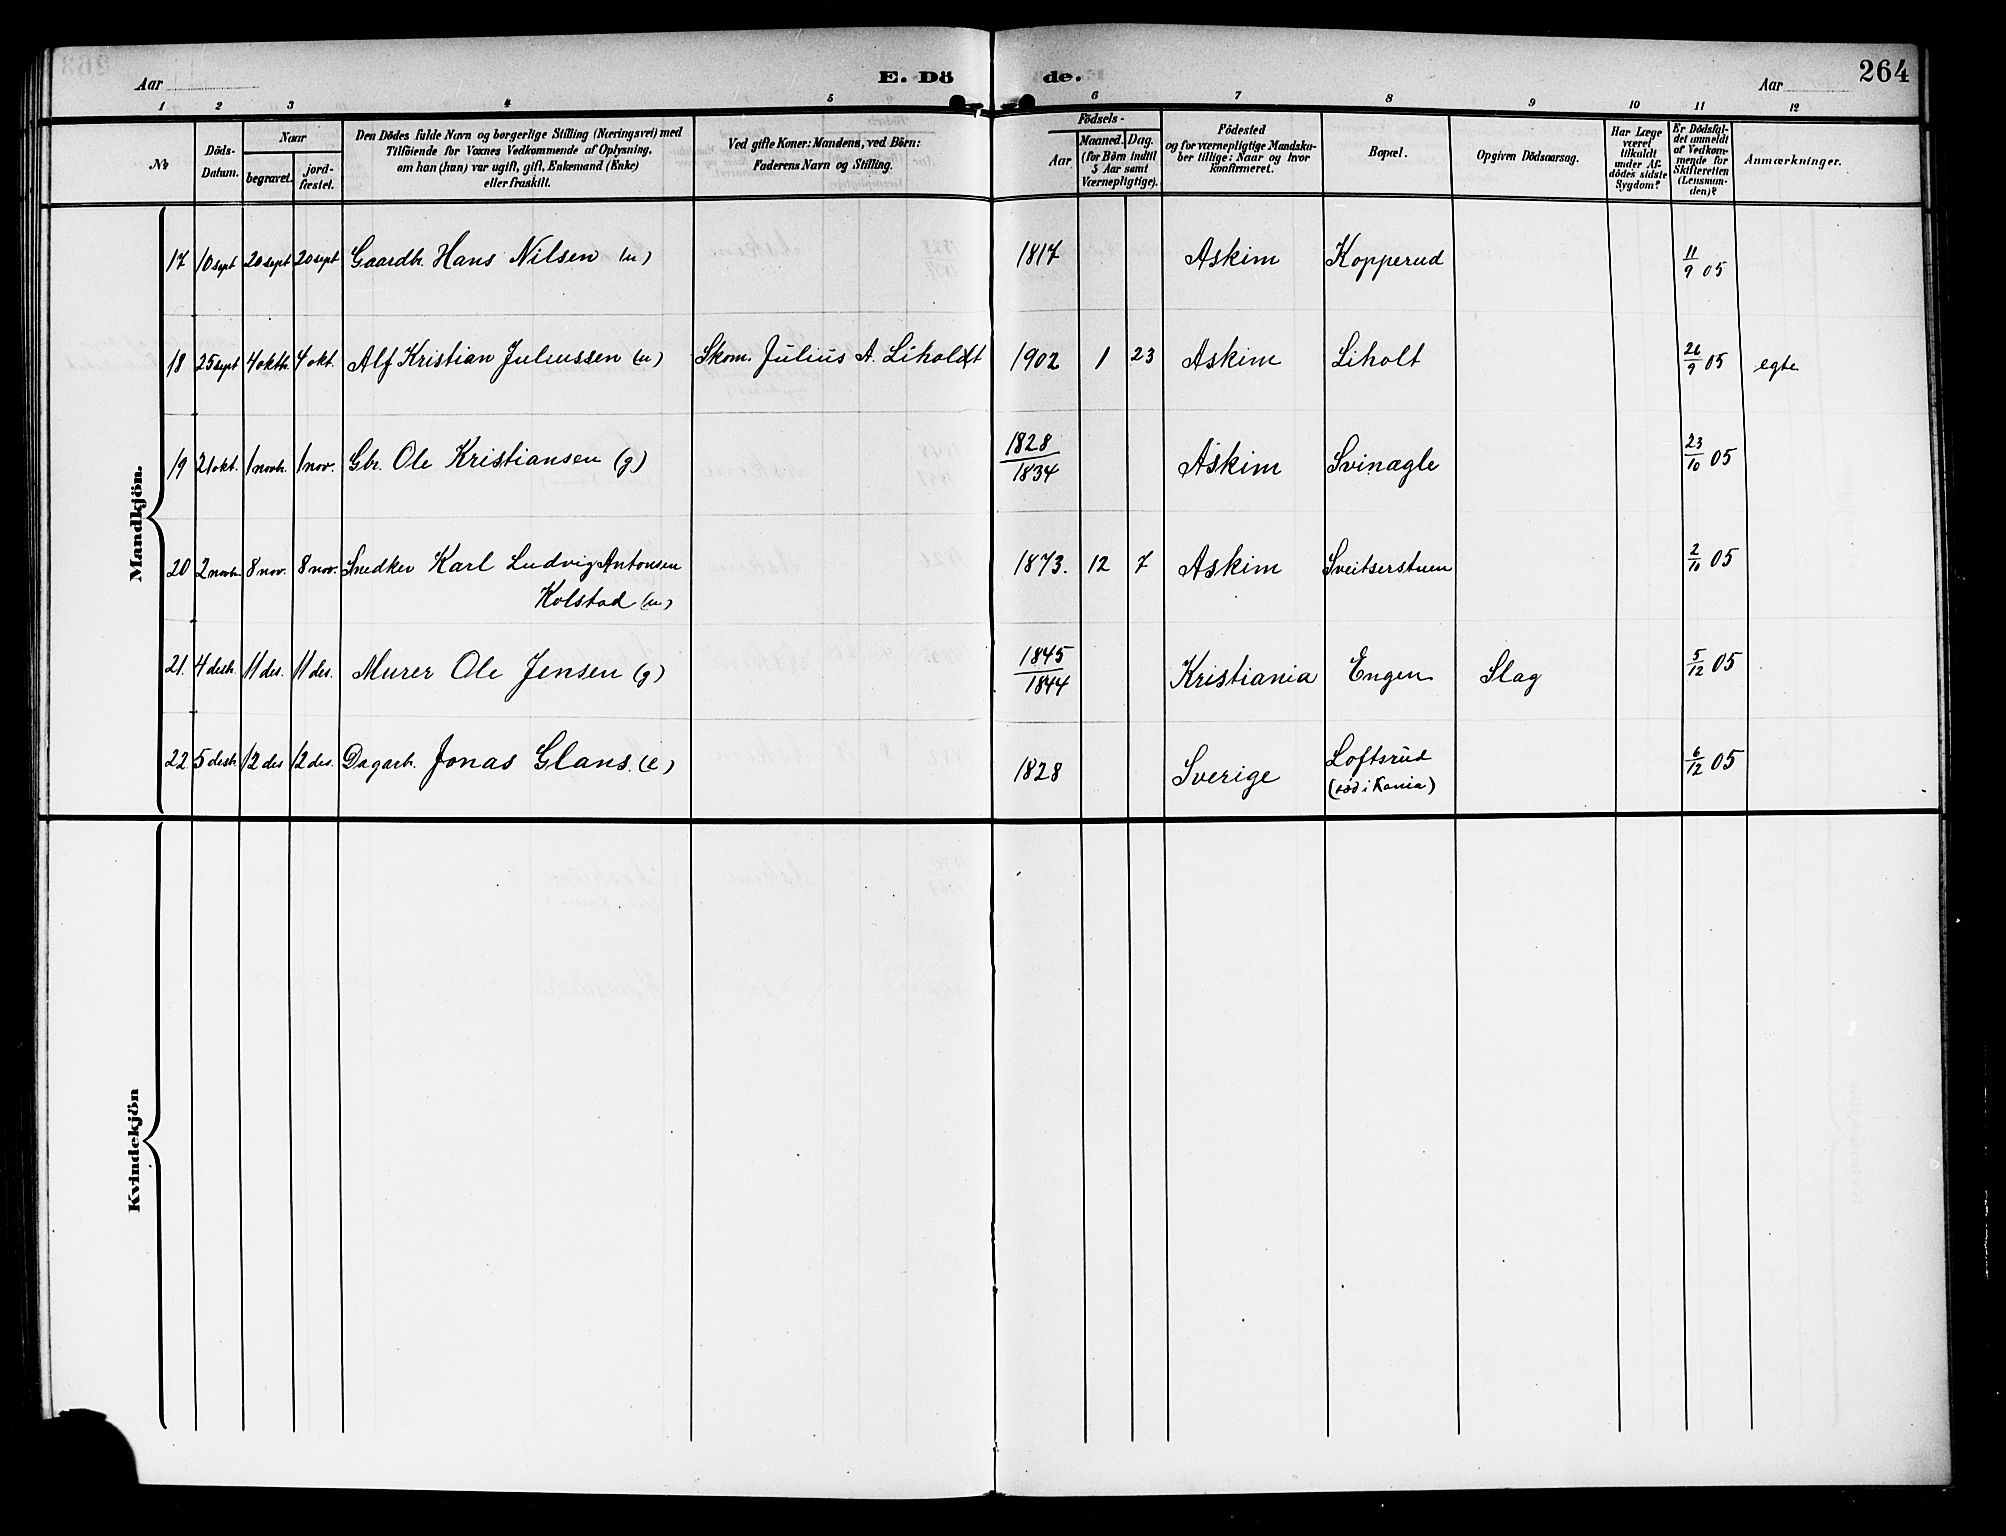 Aar
E. Dö
de.
Aar
264
1 2 3 4 5 6 7 8 9 10 11 12
No
Döds-
Datum.
Naar
begravet.
jord-
fæstet.
Den Dödes fulde Navn og borgerlige Stilling (Næringsvei) med
Tilföiende for Voxnes Vedkommende af Oplysning,
om han (hun) var ugift, gift, Enkemand (Enke)
eller fraskilt.
Ved gifte Koner: Mandens, ved Börn:
Faderens Navn og Stilling.
Födsels-
Aar
Maaned.
Dag.
(for Börn indtil
5 Aar samt
Værnepligtige).
Födested
og for værnepligtige Mandska-
ber tillige: Naar og hvor
konfirmeret.
Bopæl.
Opgiven Dödsaarsag.
Har Læge
været
tilkaldt
under Af-
dödes sidste
Sygdom?
Er Dödsfal-
det anmeldt
af Vedkom-
mende for
Skifteretten
(Lensman-
den)?
Anmærkninger.
Mandkjön.
17 10 sept 20 sept 20 sept Gaardbr. Hans Nilsen (u) 1817 Askim Kopperud 11/9 05
18 25 sept 4 oktb. 4 okt. Alf Kristian Juliussen (u) Skom. Julius A. Liholdt 1902 1 23 Askim Liholt 26/9 05 egte
19 21 okt. 1 novb. 1 nov. Gbr. Ole Kristiansen (g) 1828/1834 Askim Svinagle 23/10 05
20 2 novb. 8 nov. 8 nov. Snedker Karl Ludvig Antonsen 1873. 12 7 Askim Sveitserstuen 2/10 05
Kolstad (u)
21. 4 desb. 11 des. 11 des. Murer Ole Jensen (g) 1845/1844 Kristiania Engen Slag 5/12 05
22 5 desb 12 des 12 des. Dagarb. Jonas Glans. (e) 1828 Sverige Loftsrud 6/12 05
(död i Kania)
Kvindekjön